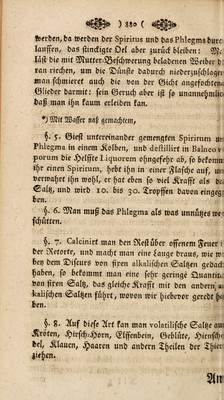 ) 380 (
werden, da werden der Spiritus und das Phlegma durch-
lauffen, das stinckigt Oel aber zurück bleiben: Man
läst die mit Mutter-Beschwerung beladenen Weiber da-
ran riechen, um die Dünste dadurch niederzuschlagen
man schmieret auch die von der Gicht angefochtene
Glieder darmit: sein Geruch aber ist so unannehmlich
daß man ihn kaum erleiden kan.
*) Mit Wasser naß gemachtem,
§. 5. Giest untereinander gemengten Spiritum und
Phlegma in einem Kolben, und destillirt in Balneo va-
porum die Helffte Liquorem ohngefehr ab, so bekommt
ihr einen Spiritum, hebt ihn in einer Flasche auf, und
verwahrt ihn wohl, er hat eben so viel Krafft als das
Saltz, und wird 10. bis 30. Tropffen davon eingege-
ben.
§. 6. Man muß das Phlegma als was unnützes weg
schütten.
§. 7. Calcinirt man den Rest über offenem Feuer in
der Retorte, und macht man eine Lauge draus, wie wir
bey dem Discurs von fixen alkalischen Saltzen gedacht
haben, so bekommt man eine sehr geringe Quantität
von fixen Saltz, das gleiche Krafft mit den andern al-
kalischen Saltzen führt, wovon wir hiebevor geredt ha-
ben.
§. 8. Auf diese Art kan man volatilische Saltze aus
Kröten, Hirsch-Horn, Elffenbein, Geblüte, Hirnschä-
del, Klauen, Haaren und andern Theilen der Thiere
ziehen.